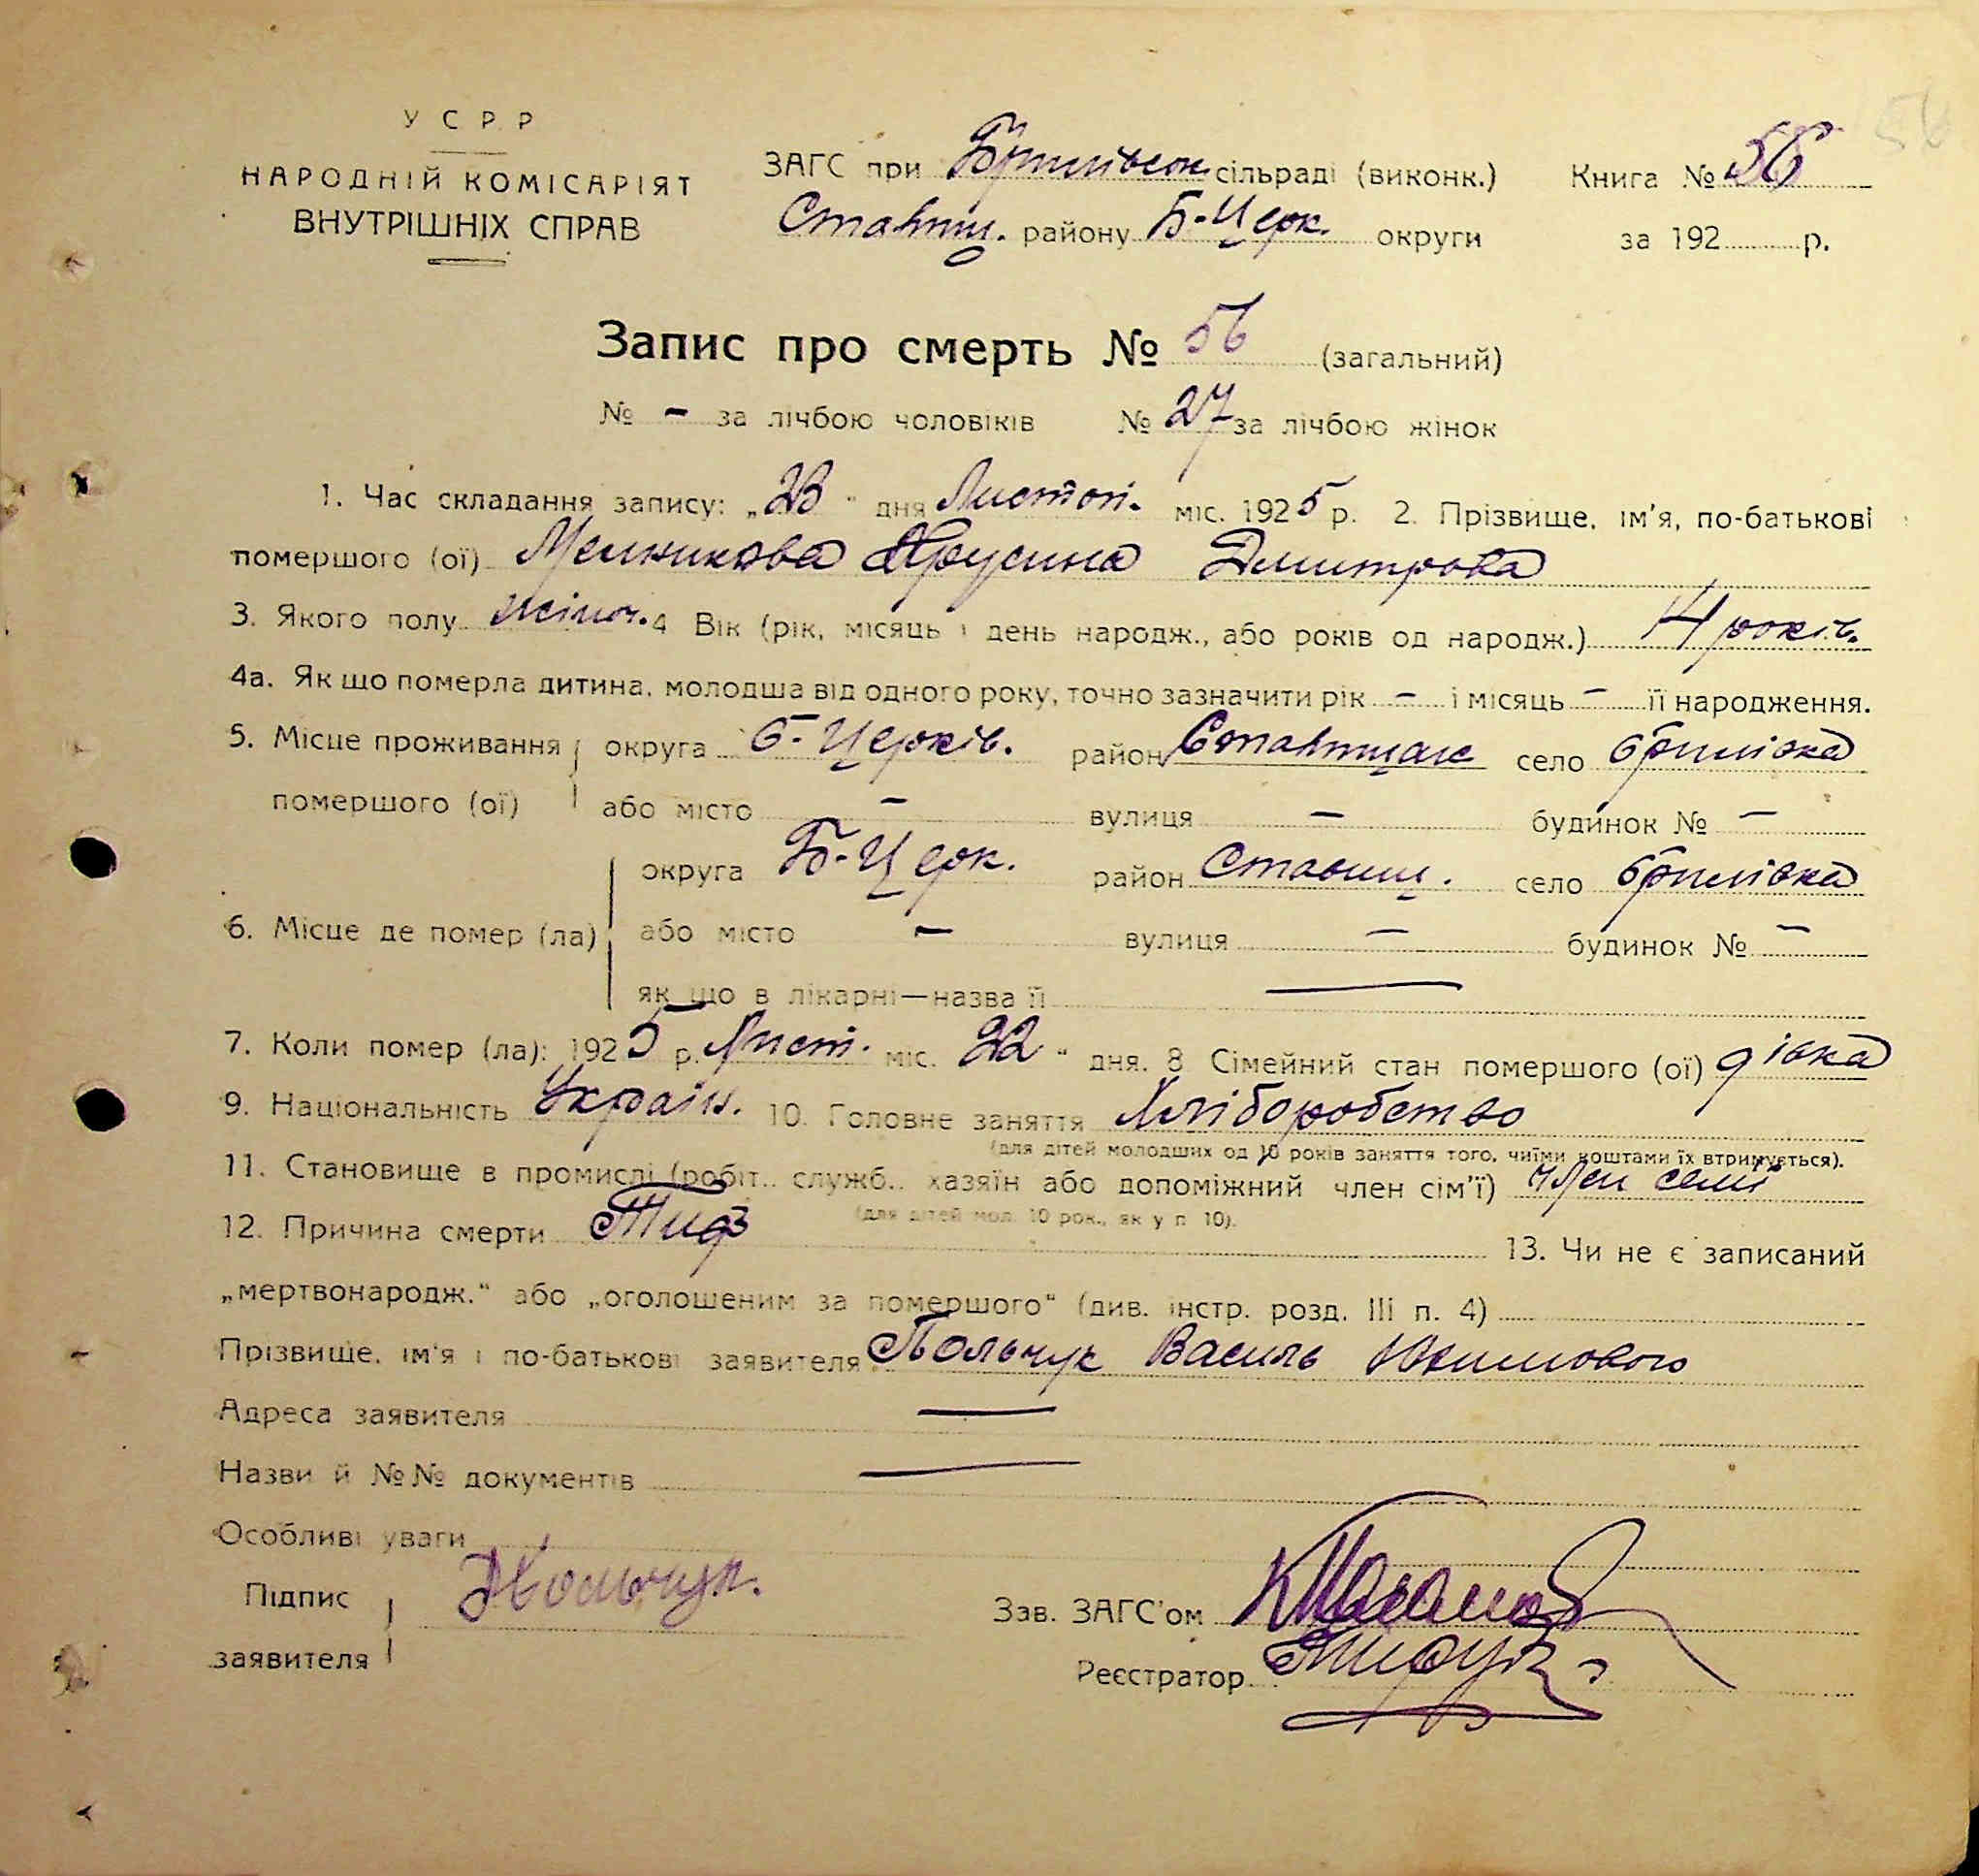 56
У С Р Р
НАРОДНІЙ КОМІСАРІЯТ
ВНУТРІШНІХ СПРАВ
ЗАГС при Брилівськ. сільраді (виконк.) Книга № 56
Ставищ. району Б-Церк. округи за 192 р.
Запис про смерть № 56 (загальний)
№ - за лічбою чоловіків № 27 за лічбою жінок
1. Час складання запису: „23" дня Листоп. міс. 1925 р. 2. Прізвище, ім'я, по-батькові
помершого (ої) Мельникова Фрусина Дмитрова
3. Якого полу жіноч. 4 Вік (рік, місяць і день народж., або років од народж.) 14 років.
4а. Як що померла дитина, молодша від одного року, точно зазначити рік - і місяць - її народження.
5. Місце проживання округа Б-Церків. район Ставищан село Брилівка
помершого (ої) або місто - вулиця - будинок № -
округа Б-Церк. район Ставищ. село Брилівка
6. Місце де помер (ла) або місто - вулиця - будинок № -
як що в лікарні—назва її —
7. Коли помер (ла): 1925 р. Лист. міс. 22" дня. 8 Сімейний стан помершого (ої) дівка
9. Національність Україн. 10. Головне заняття Хліборобство
(для дітей молодших од 10 років заняття того, чиїми коштами їх втримується).
11. Становище в промислі (робіт.. служб.. хазяїн або допоміжний член сім'ї) член семї
(для дітей мол. 10 рок., як у п 10).
12. Причина смерти Тиф 13. Чи не є записаний
„мертвонародж." або „оголошеним за помершого" (див. інстр. розд. III п. 4)
Прізвище, ім'я і по-батькові заявителя Польчук Василь Якимового
Адреса заявителя —
Назви й №№ документів —
Особливі уваги
Підпис Польчук.
заявителя
Зав. ЗАГС'ом
Реєстратор